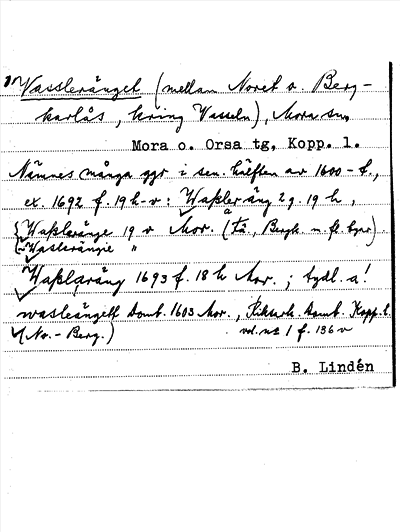 Vassleränget (mellan Noret o. Berg-
karlås, kring Vasseln), Mora sn,
Mora o. Orsa tg, Kopp. l.
Nämnes många ggr i sen. hälften av 1600-t.,
ex. 1692 f. 19 h-v: Waßleräng 2 g. 19 h,
Waßleränge 19 v Mor. (Få, Bergk. m. fl. byar).
~Waslerängie "
Waßlaräng 1693 f. 18 h Mor.; tydl. a!
wasleängett domb. 1603 Mor., Riksark. domb. Kopp. l.
(No.-Berg.) vol. nr 1 f. 136 v
B. Lindén